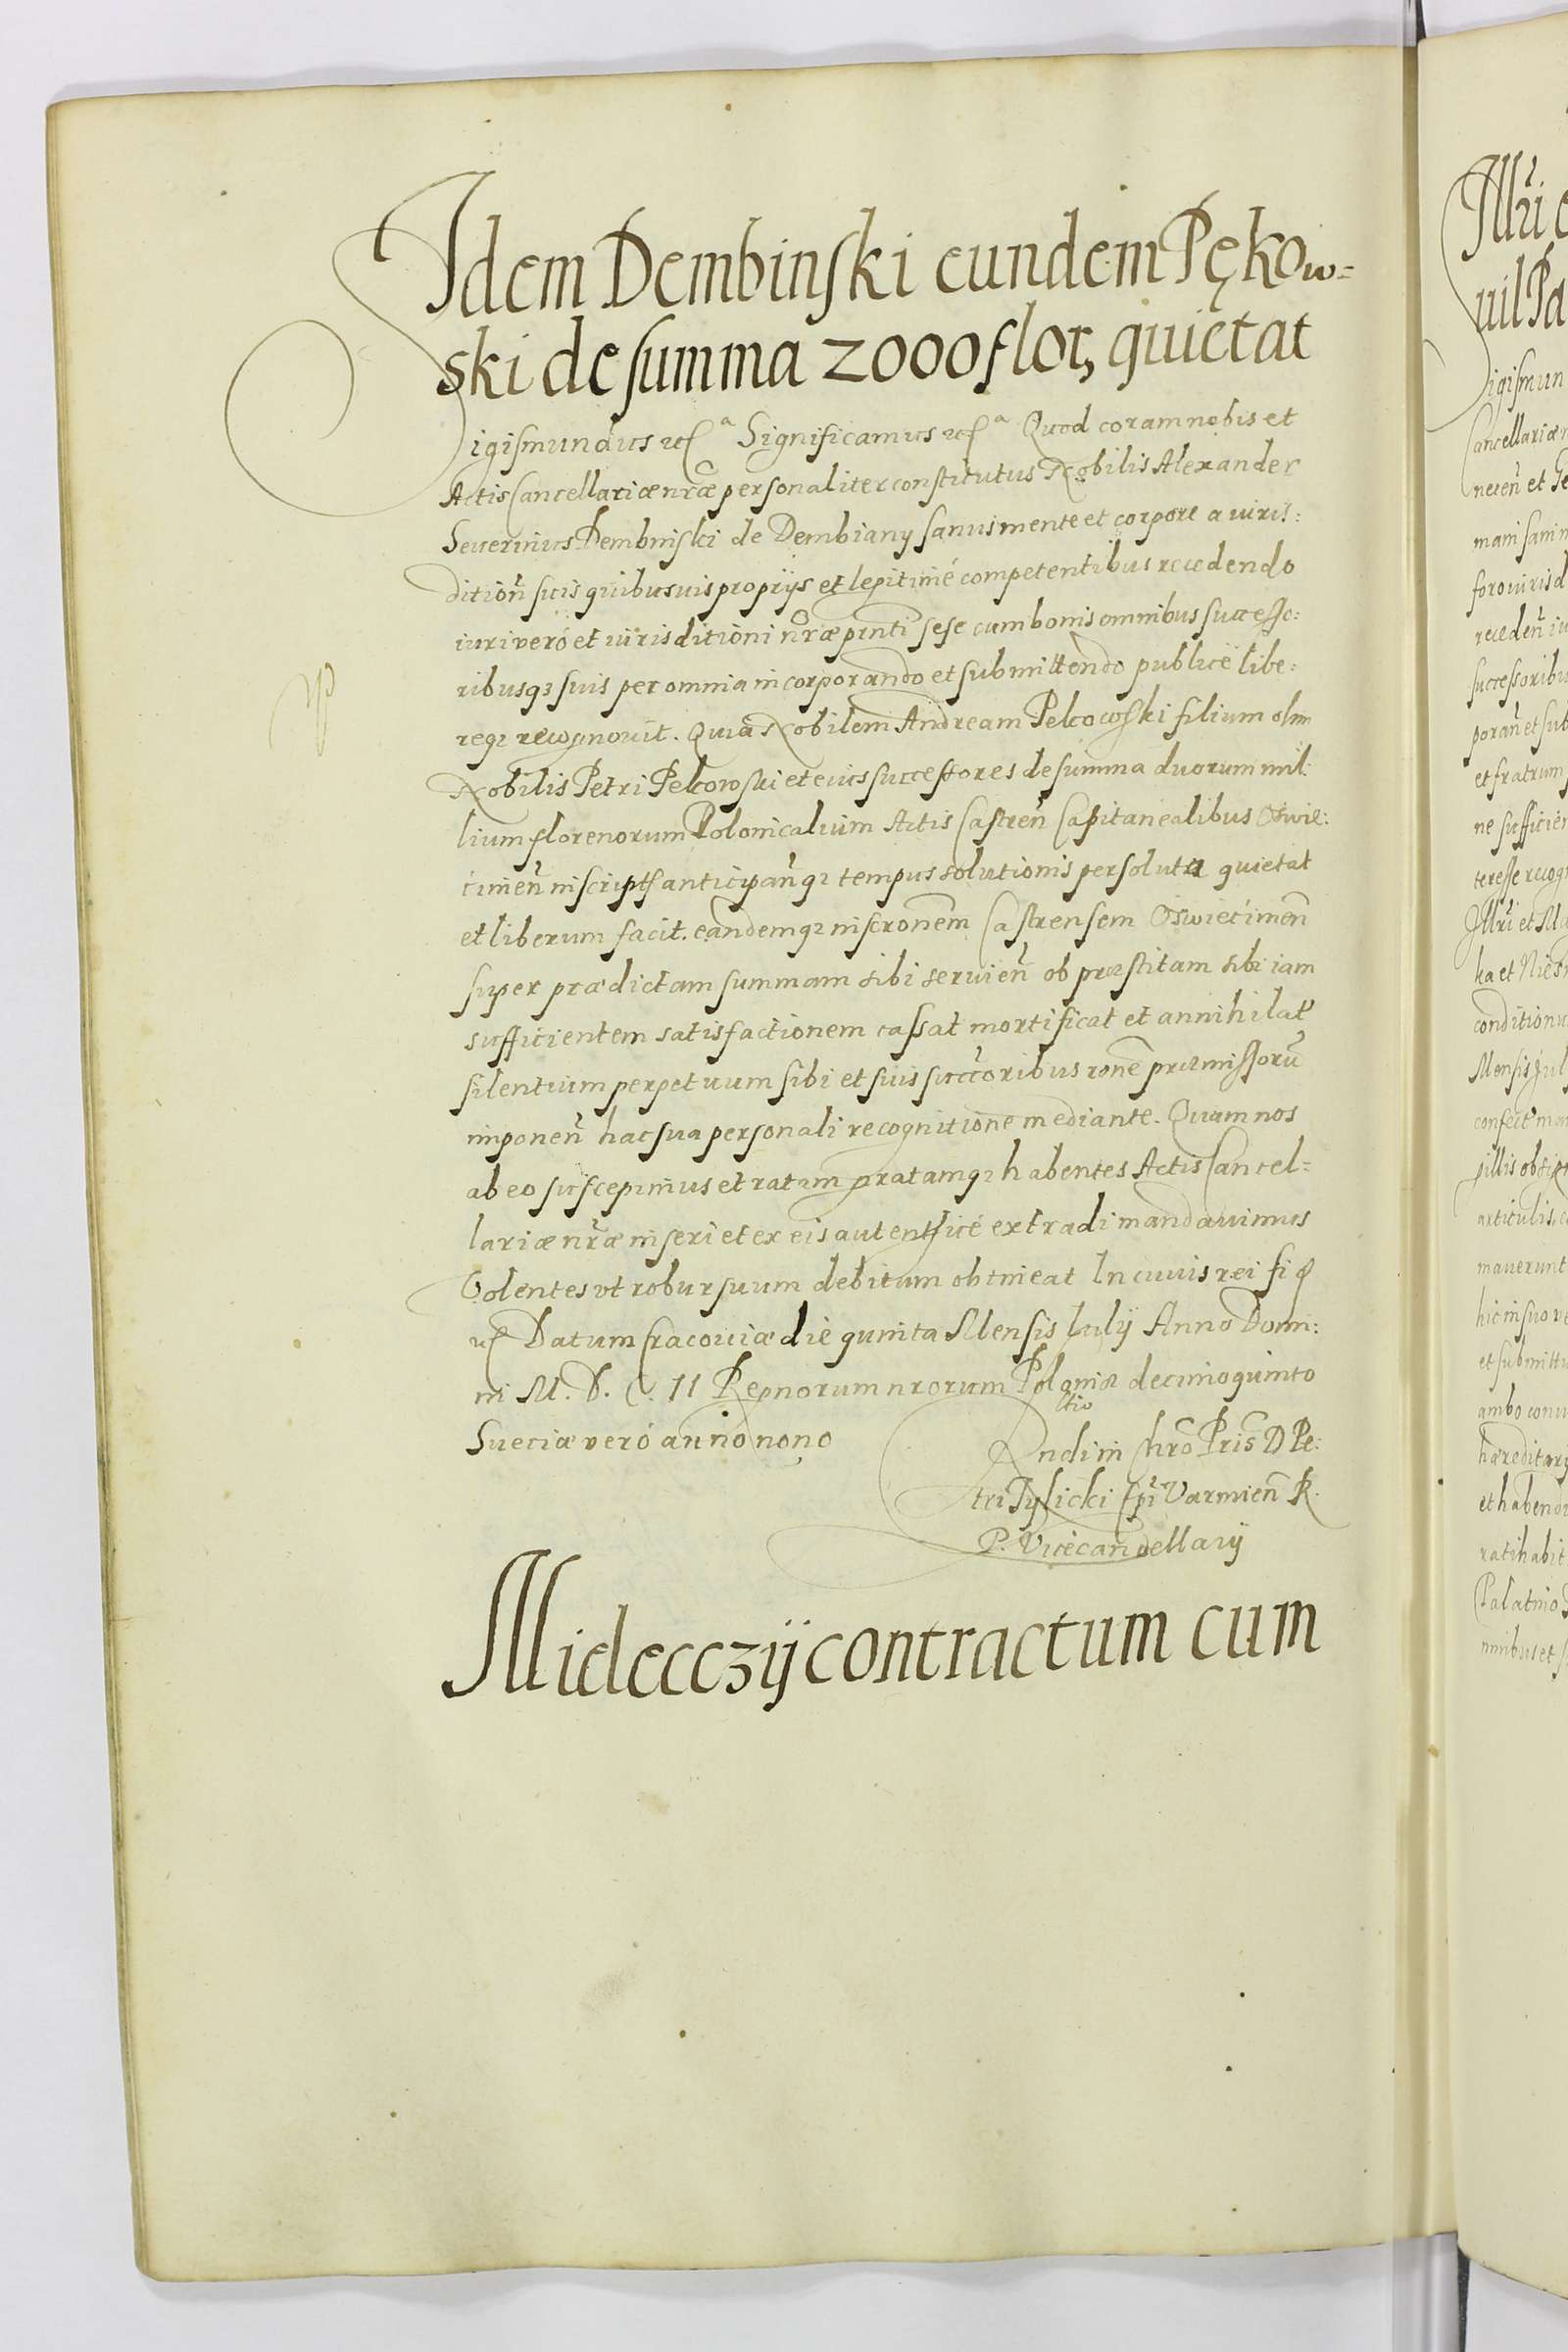 Idem Dembinski eundem Pękow=
ski de summa 2000 flor, quietat
Sigismundus etc a Significamus etc a Quod coram nobis et
Actis Cancellariæ nrãe personaliter constitutus Nobilis Alexander
Seuerinus Dembinski de Dembiany sanus mente et corpore a iuris:
dition̄ suis quibusuis proprijs et legitimé competentibus recedendo
iuri veró et iurisditioni nr̄æ pnti sese cum bonis omnibus successo:
ribusq3 suis per omnia incorporando et submittendo publicè libe:
req3 recognouit. Quia Nobilem Andream Pelcowski filium olim
Nobilis Petri Pelcowski et eius successores de summa duorum mil:
lium florenorum Polonicalium Actis Castren̄ Capitanealibus Oswie:
cimen̄ inscript anticipan̄q3 tempus solutionis persoluta quietat
et liberum facit. eandemq3 inscronem Castrensem Oswiecimen̄
super prædictam summam sibi seruien̄ ob præstitam sibi iam
sufficientem satisfactionem cassat mortificat et annihilat
silentium perpetuum sibi et suis succcoribus rone præmissorū
imponen̄ hac sua personali recognitione mediante. Quam nos
ab eo suscepimus et ratam gratamq3 habentes Actis Cancel=
lariæ nr̄æ inseri et ex eis autenticé extradi mandauimus
Volentes vt robur suum debitum obtineat In cuius rei fi
etc Datum Cracouiæ die quinta Mensis Iulij Anno Domi:
ni M. D. C. II Regnorum nrorum Poloniæ decimoquinto
Sueciæ veró anno nono
ctio
Rndi in Chrō Pris D Pe:
tri Tylicki Epi Varmien̄ R.
P. Vicecancellarij
Mielecczij contractum cum
Illri
uil Pa
Sigismun
Cancellariæ
necen̄ et Ge
mani sani
foro iurisd
receden̄ iu
successoribu
poran̄ et sub
et fratrum
ne sufficien
teresse recog
Illri et M
ka et Nies
conditioni
Mensis Jul
confect
sillis obsig
articulis
mauerunt
hic in suo ve
et submittu
ambo conu
hæreditary
et habend
ratihabit
Palatino